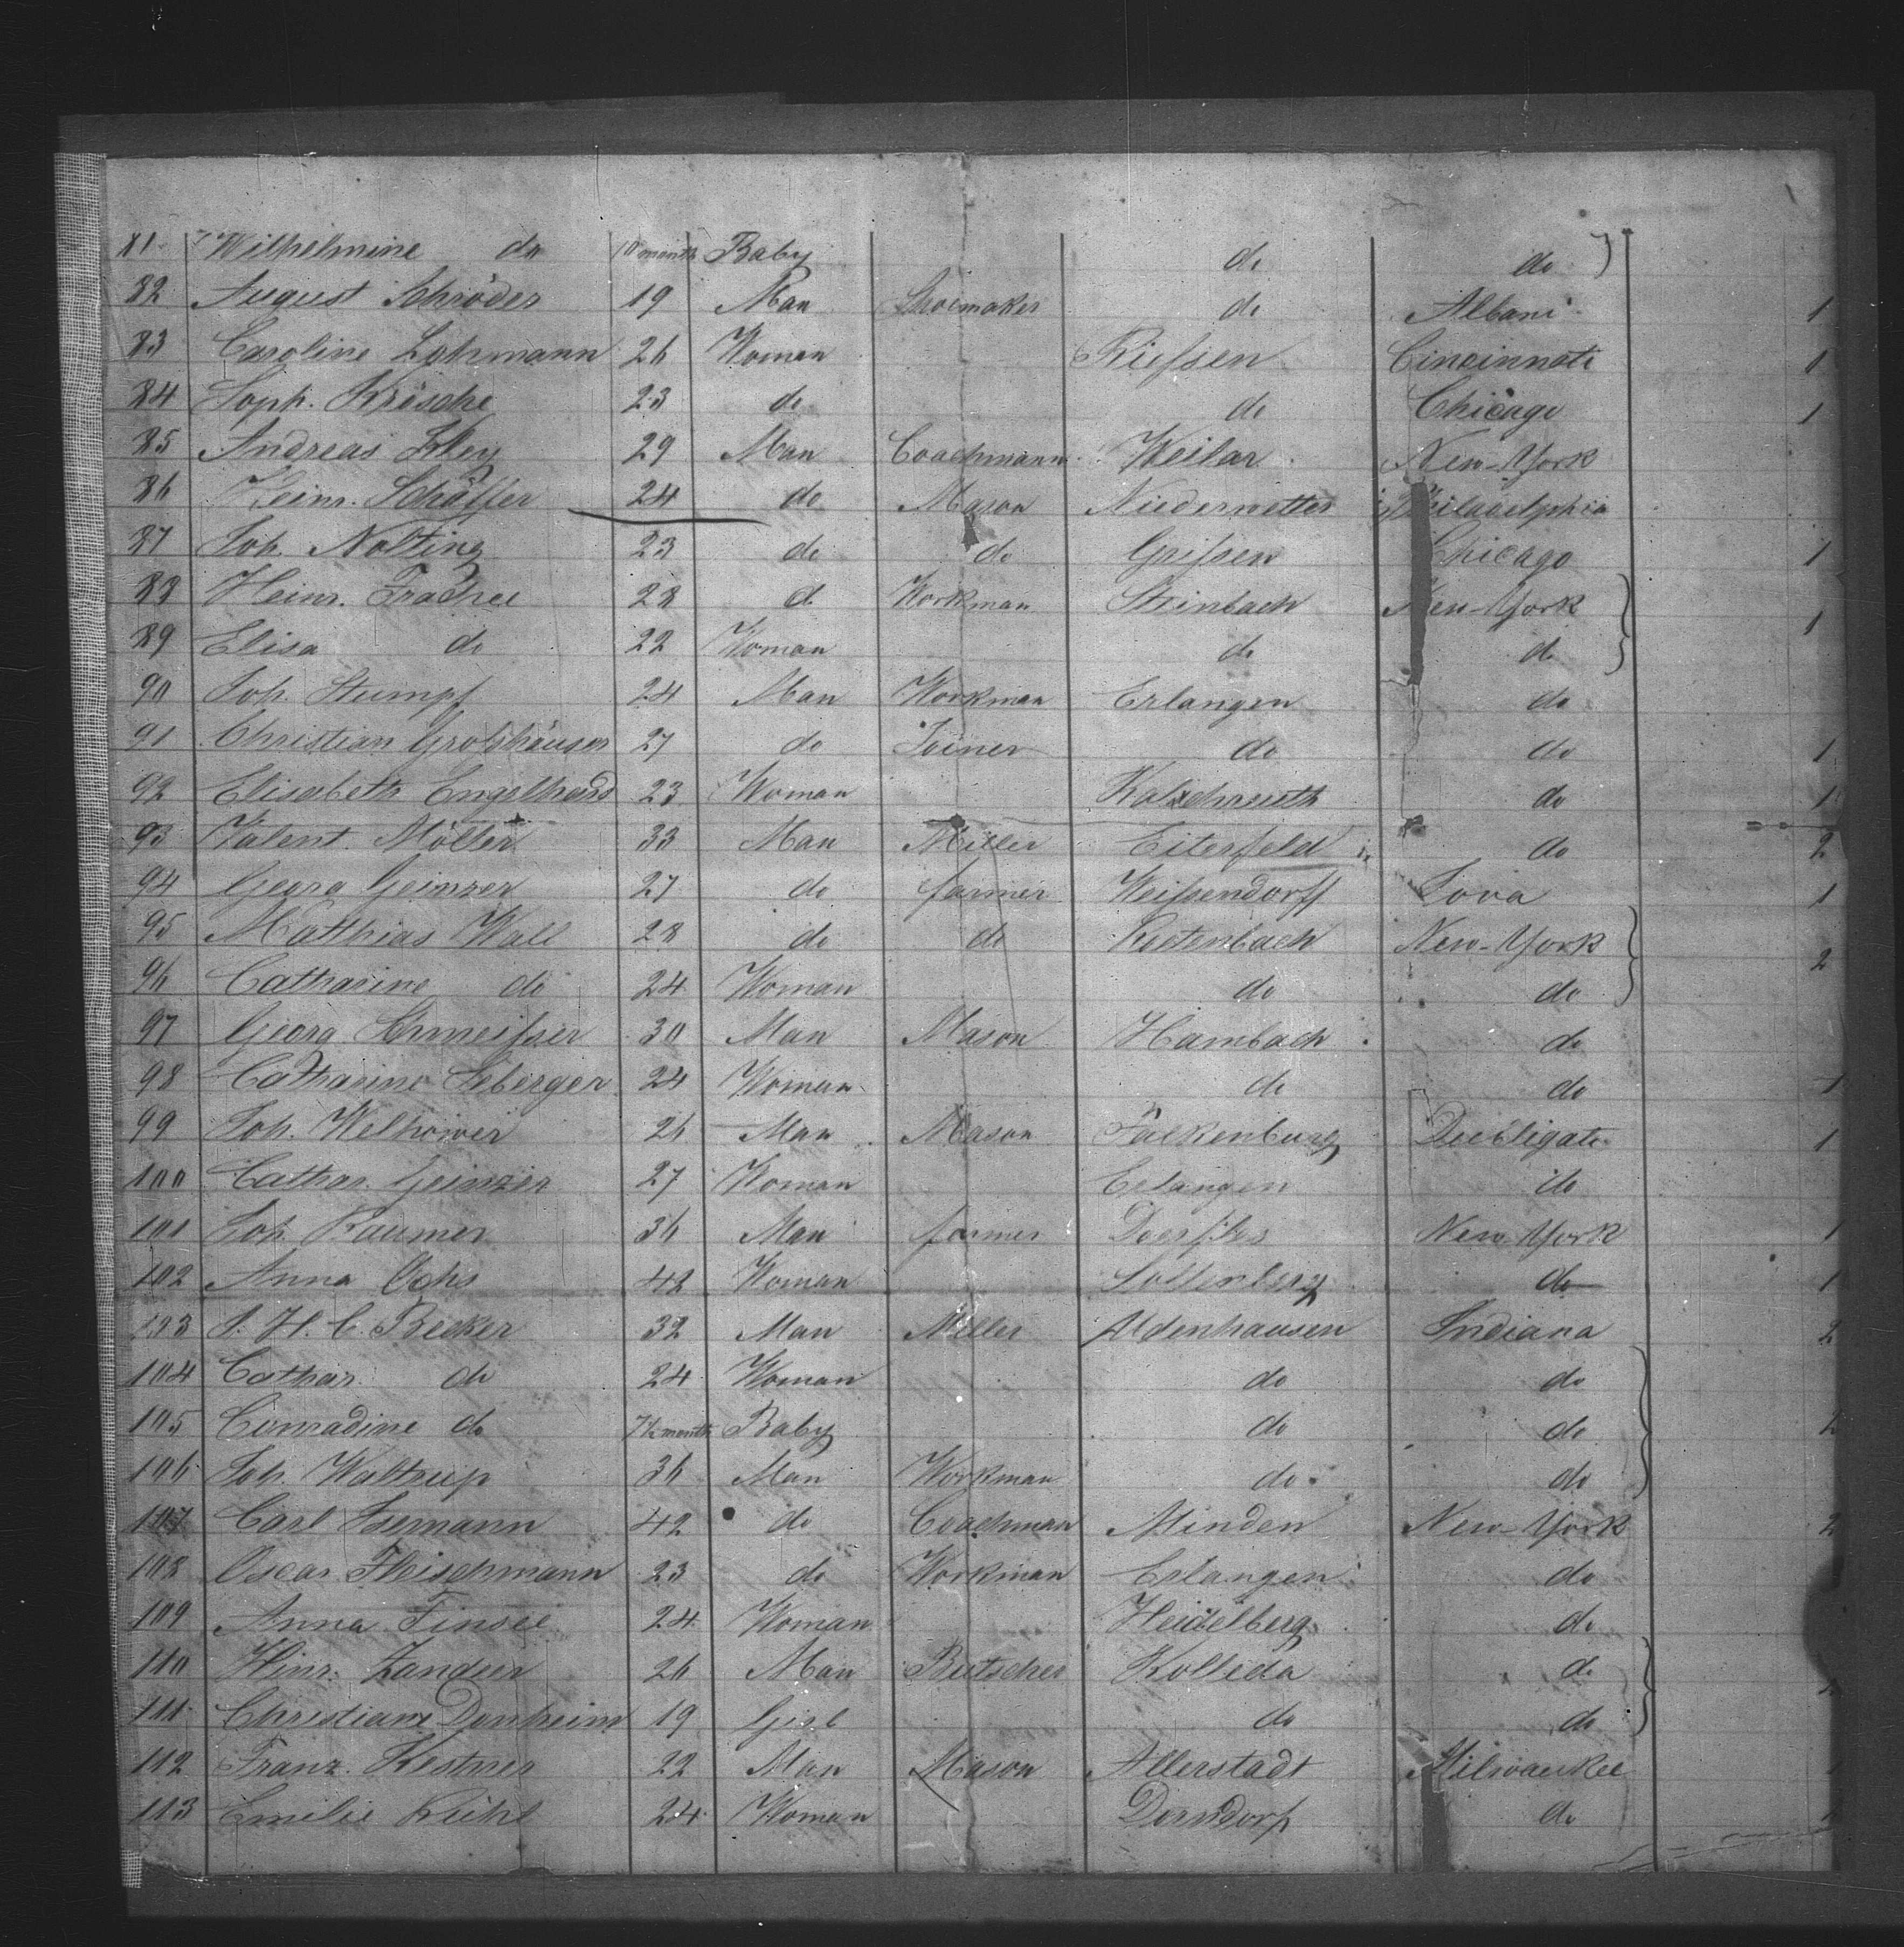 81 Wilhelmine do 10 month Baby do do
82 August Schröder 19 Man Shoemaker do Albani 1
83 Caroline Lohmann 26 Woman Riefsen Cincinnati 1
84 Soph. Krösche 23 do do Chicago 1
85 Andreas Kley 29 Man Coachmann Weilar New-York
86 Heinr. Schäffer 24 do Mason Niederwetter Philadelphia
87 Joh. Nolting 23 do do Grifsen Chicago 1
88 Heinr. 28 do Workman Steinbach New-York
89 Elisa do 22 Woman do do 1
90 Joh. Stumpf 24 Man Workman Erlangen do
91 Christian Grofshäuser 27 do Joiner do do 1
92 Elisabeth Engelhard 23 Woman Kalchreuth do 1
93 Valent. Möller 33 Man Miller Eiterfeld do 2
94 Georg Geinzer 27 do farmer Weifsendorff Iova 1
95 Matthias Wall 28 do do Kestenbach New-York
96 Catharine do 24 Woman do do 2
97 Georg Schmeifser 30 Man Mason Hambach do
98 Catharine Seberger 24 Woman do do 1
99 Joh. Welhöwer 26 Man Mason Falkenburg 1
100 Cathar. Geinzer 27 Woman Erlangen do
101 Joh. Raumer 36 Man farmer New-York 1
102 Anna Ochs 42 Woman do 1
103 J. H. C. Becker 32 Man Miller Aldenhausen Indiana 2
104 Cathar. do 24 Woman do do
105 Conradine do 7½ month Baby do do 2
106 Joh. Waltrup 36 Man Workman do do
107 Carl Isemann 42 do Coachman Minden New-York 2
108 Oscar Fleischmann 23 do Workman Erlangen do
109 Anna 24 Woman Heidelberg do
110 Hinr. Zander 26 Man Butscher Kolleda do
111 Christiane Donheim 19 Girl do do
112 Franz Kestner 22 Man Mason Allerstadt Milwaukee 1
113 Emelie Kühl 24 Woman Dorndorf do